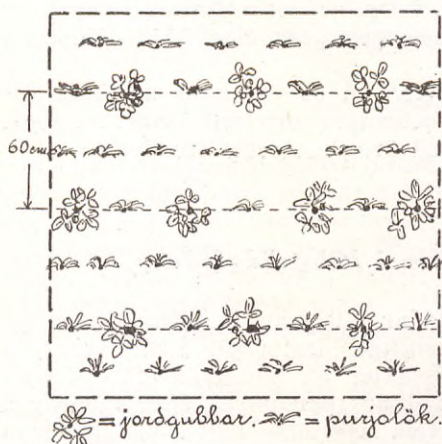 60 cm
= jordgubbar. = purjolök.